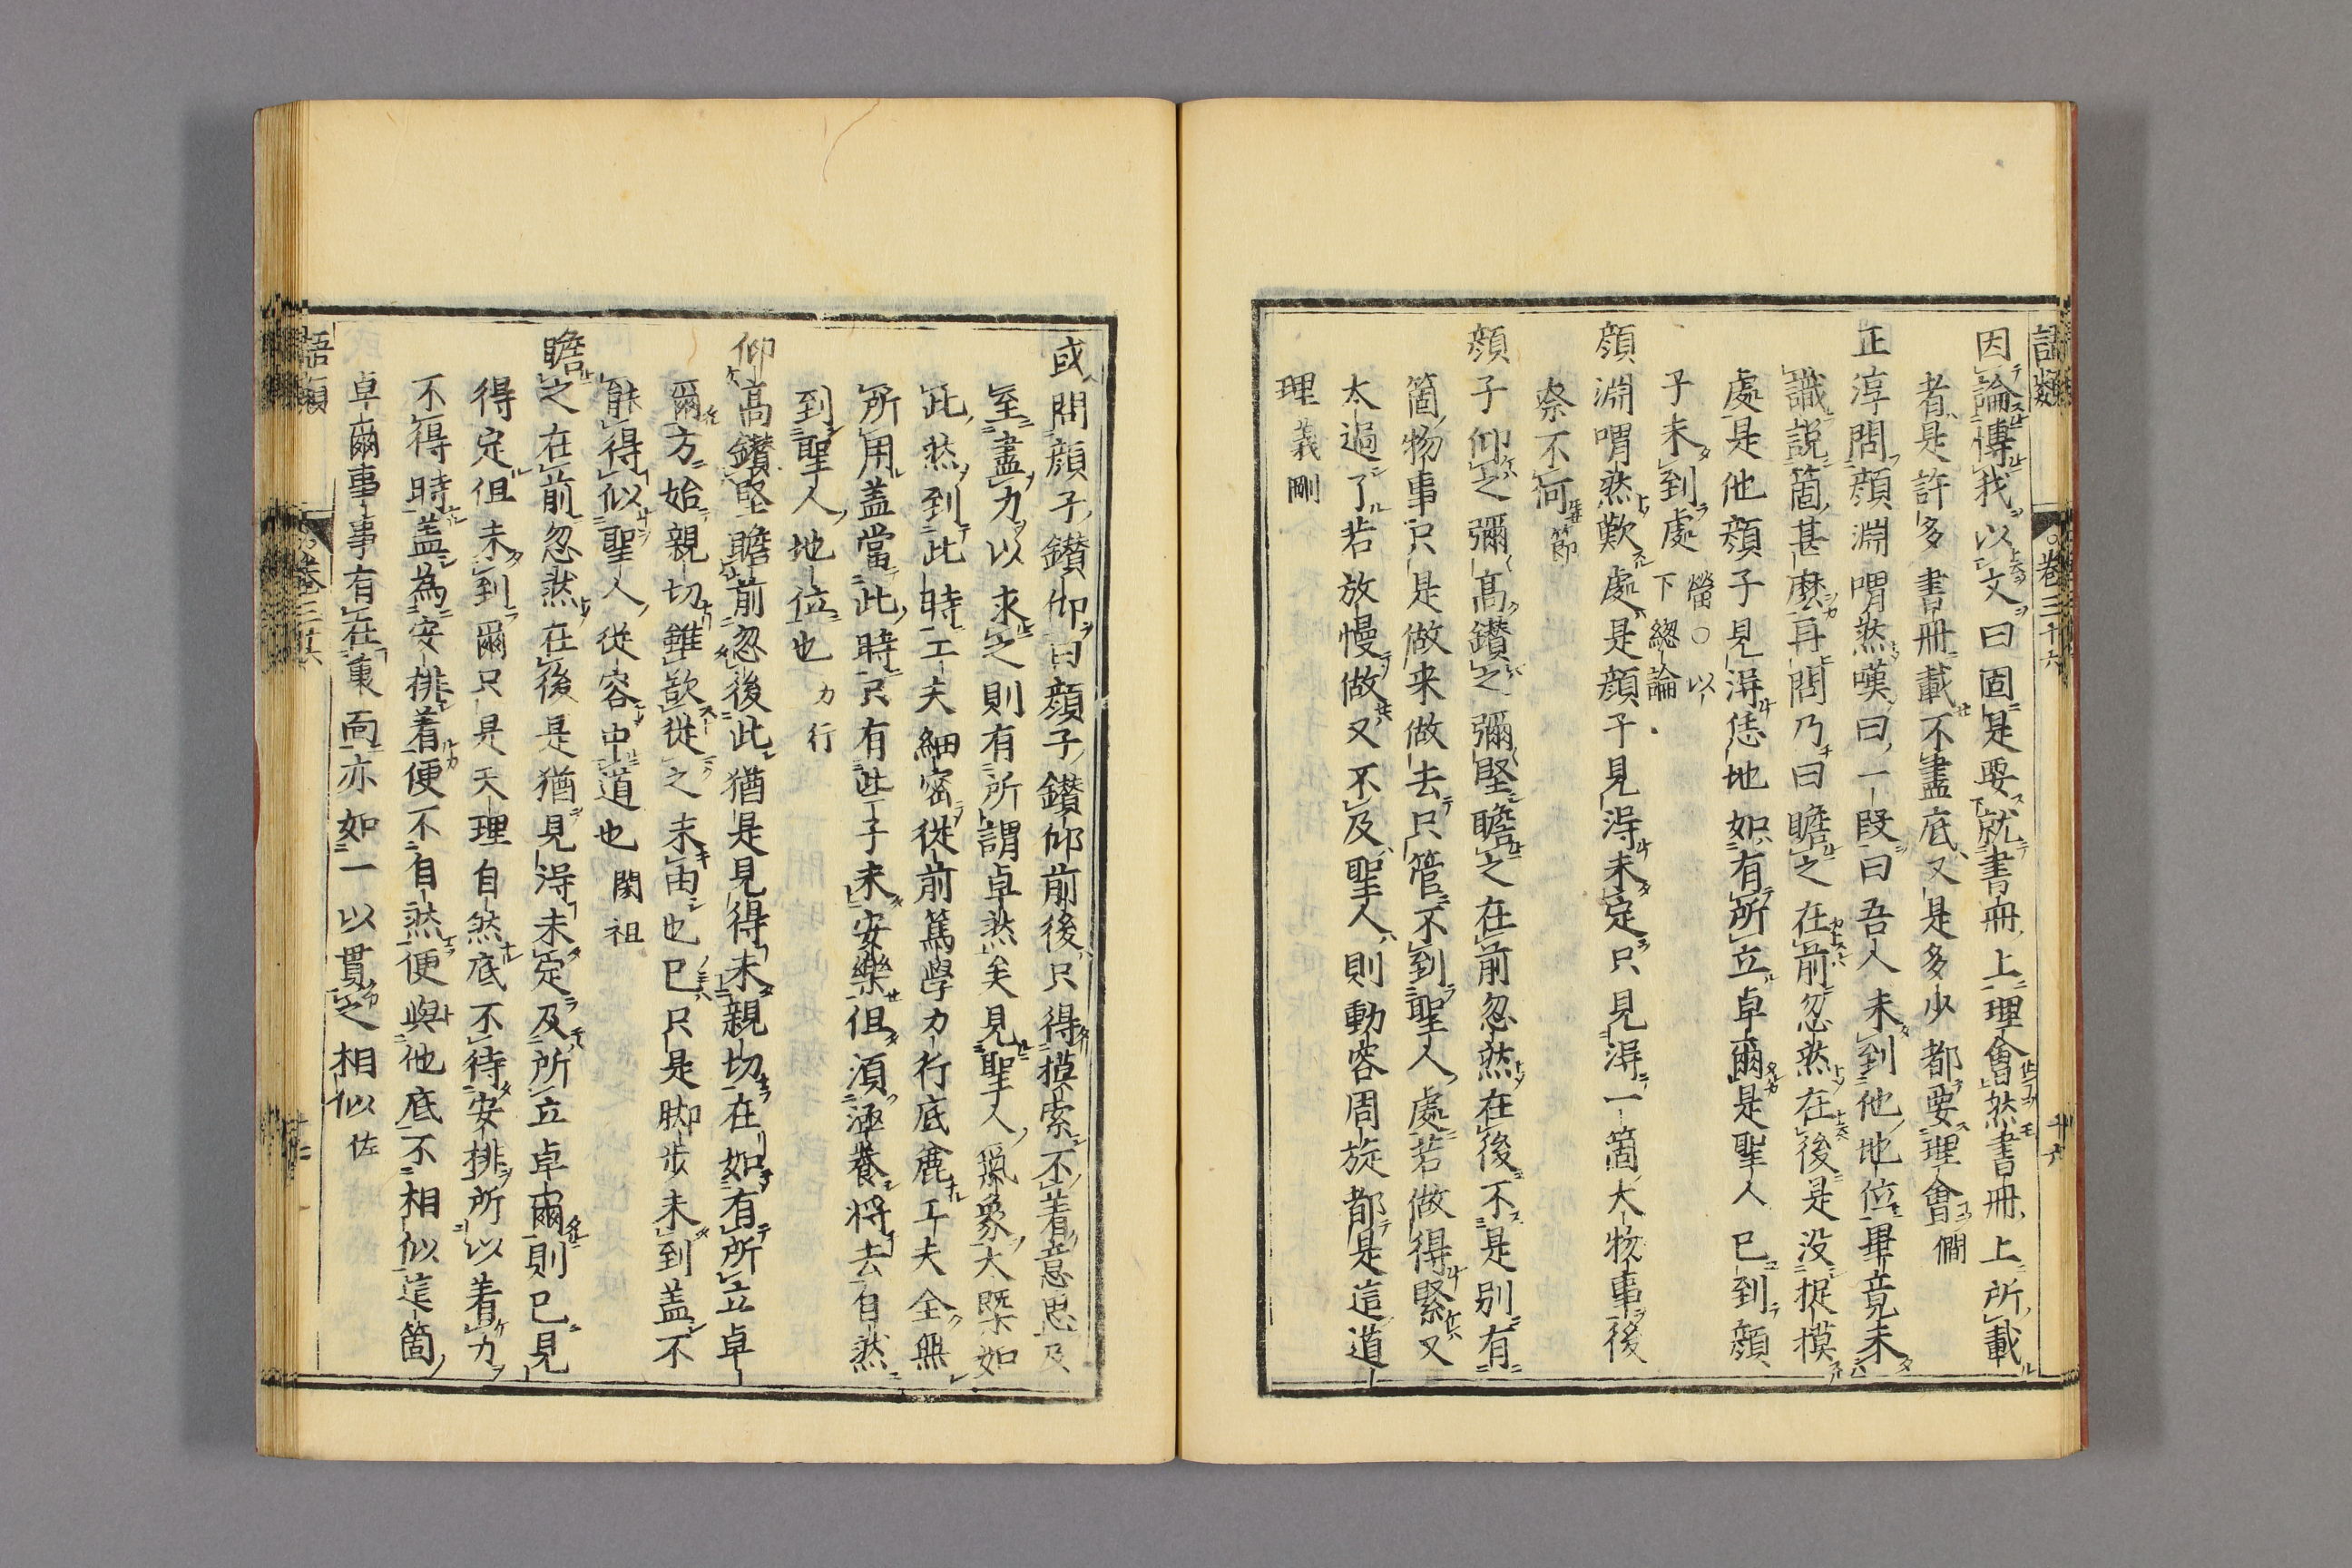 語類
卷三十六
十六
因論博我以文曰固是要就書冊上理會然書冊上所載
者是許多書冊載不盡底又是多少都要理會僩
正淳問顏淵喟然嘆曰一段曰吾人未到他地位畢竟未
識說箇甚麽再問乃曰瞻之在前忽然在後是没捉摸
處是他顏子見得恁地如有所立卓爾是聖人已到顏
子未到處㽦○以下總論
顏淵喟然歎處是顏子見得未定只見得一箇大物事後
奈不何節
顏子仰之彌高鑚之彌堅瞻之在前忽然在後不是別有
箇物事只是做来做去只管不到聖人處若做得緊又
太過了若放慢做又不及聖人則動容周旋都是這道
理義剛
或問顏子鑚仰曰顏子鑚仰前後只得摸索不着意思及
至盡力以求之則有所謂卓然矣見聖人氣象大槩如
此然到此時工夫細密從前篤學力行底麁工夫全無
所用盖當此時只有些子未安樂但須涵養将去自然
到聖人地位也力行
仰高鑚堅瞻前忽後此猶是見得未親切在如有所立卓
爾方始親切雖欲從之末由也已只是脚步未到盖不
能得似聖人從容中道也閎祖
瞻之在前忽然在後是猶見得未定及所立卓爾則已見
得定但未到爾只是天理自然底不待安排所以着力
不得時盖為安排着便不自然便與他底不相似這箇
卓爾事事有在裏面亦如一以貫之相似佐
語類
卷三十六